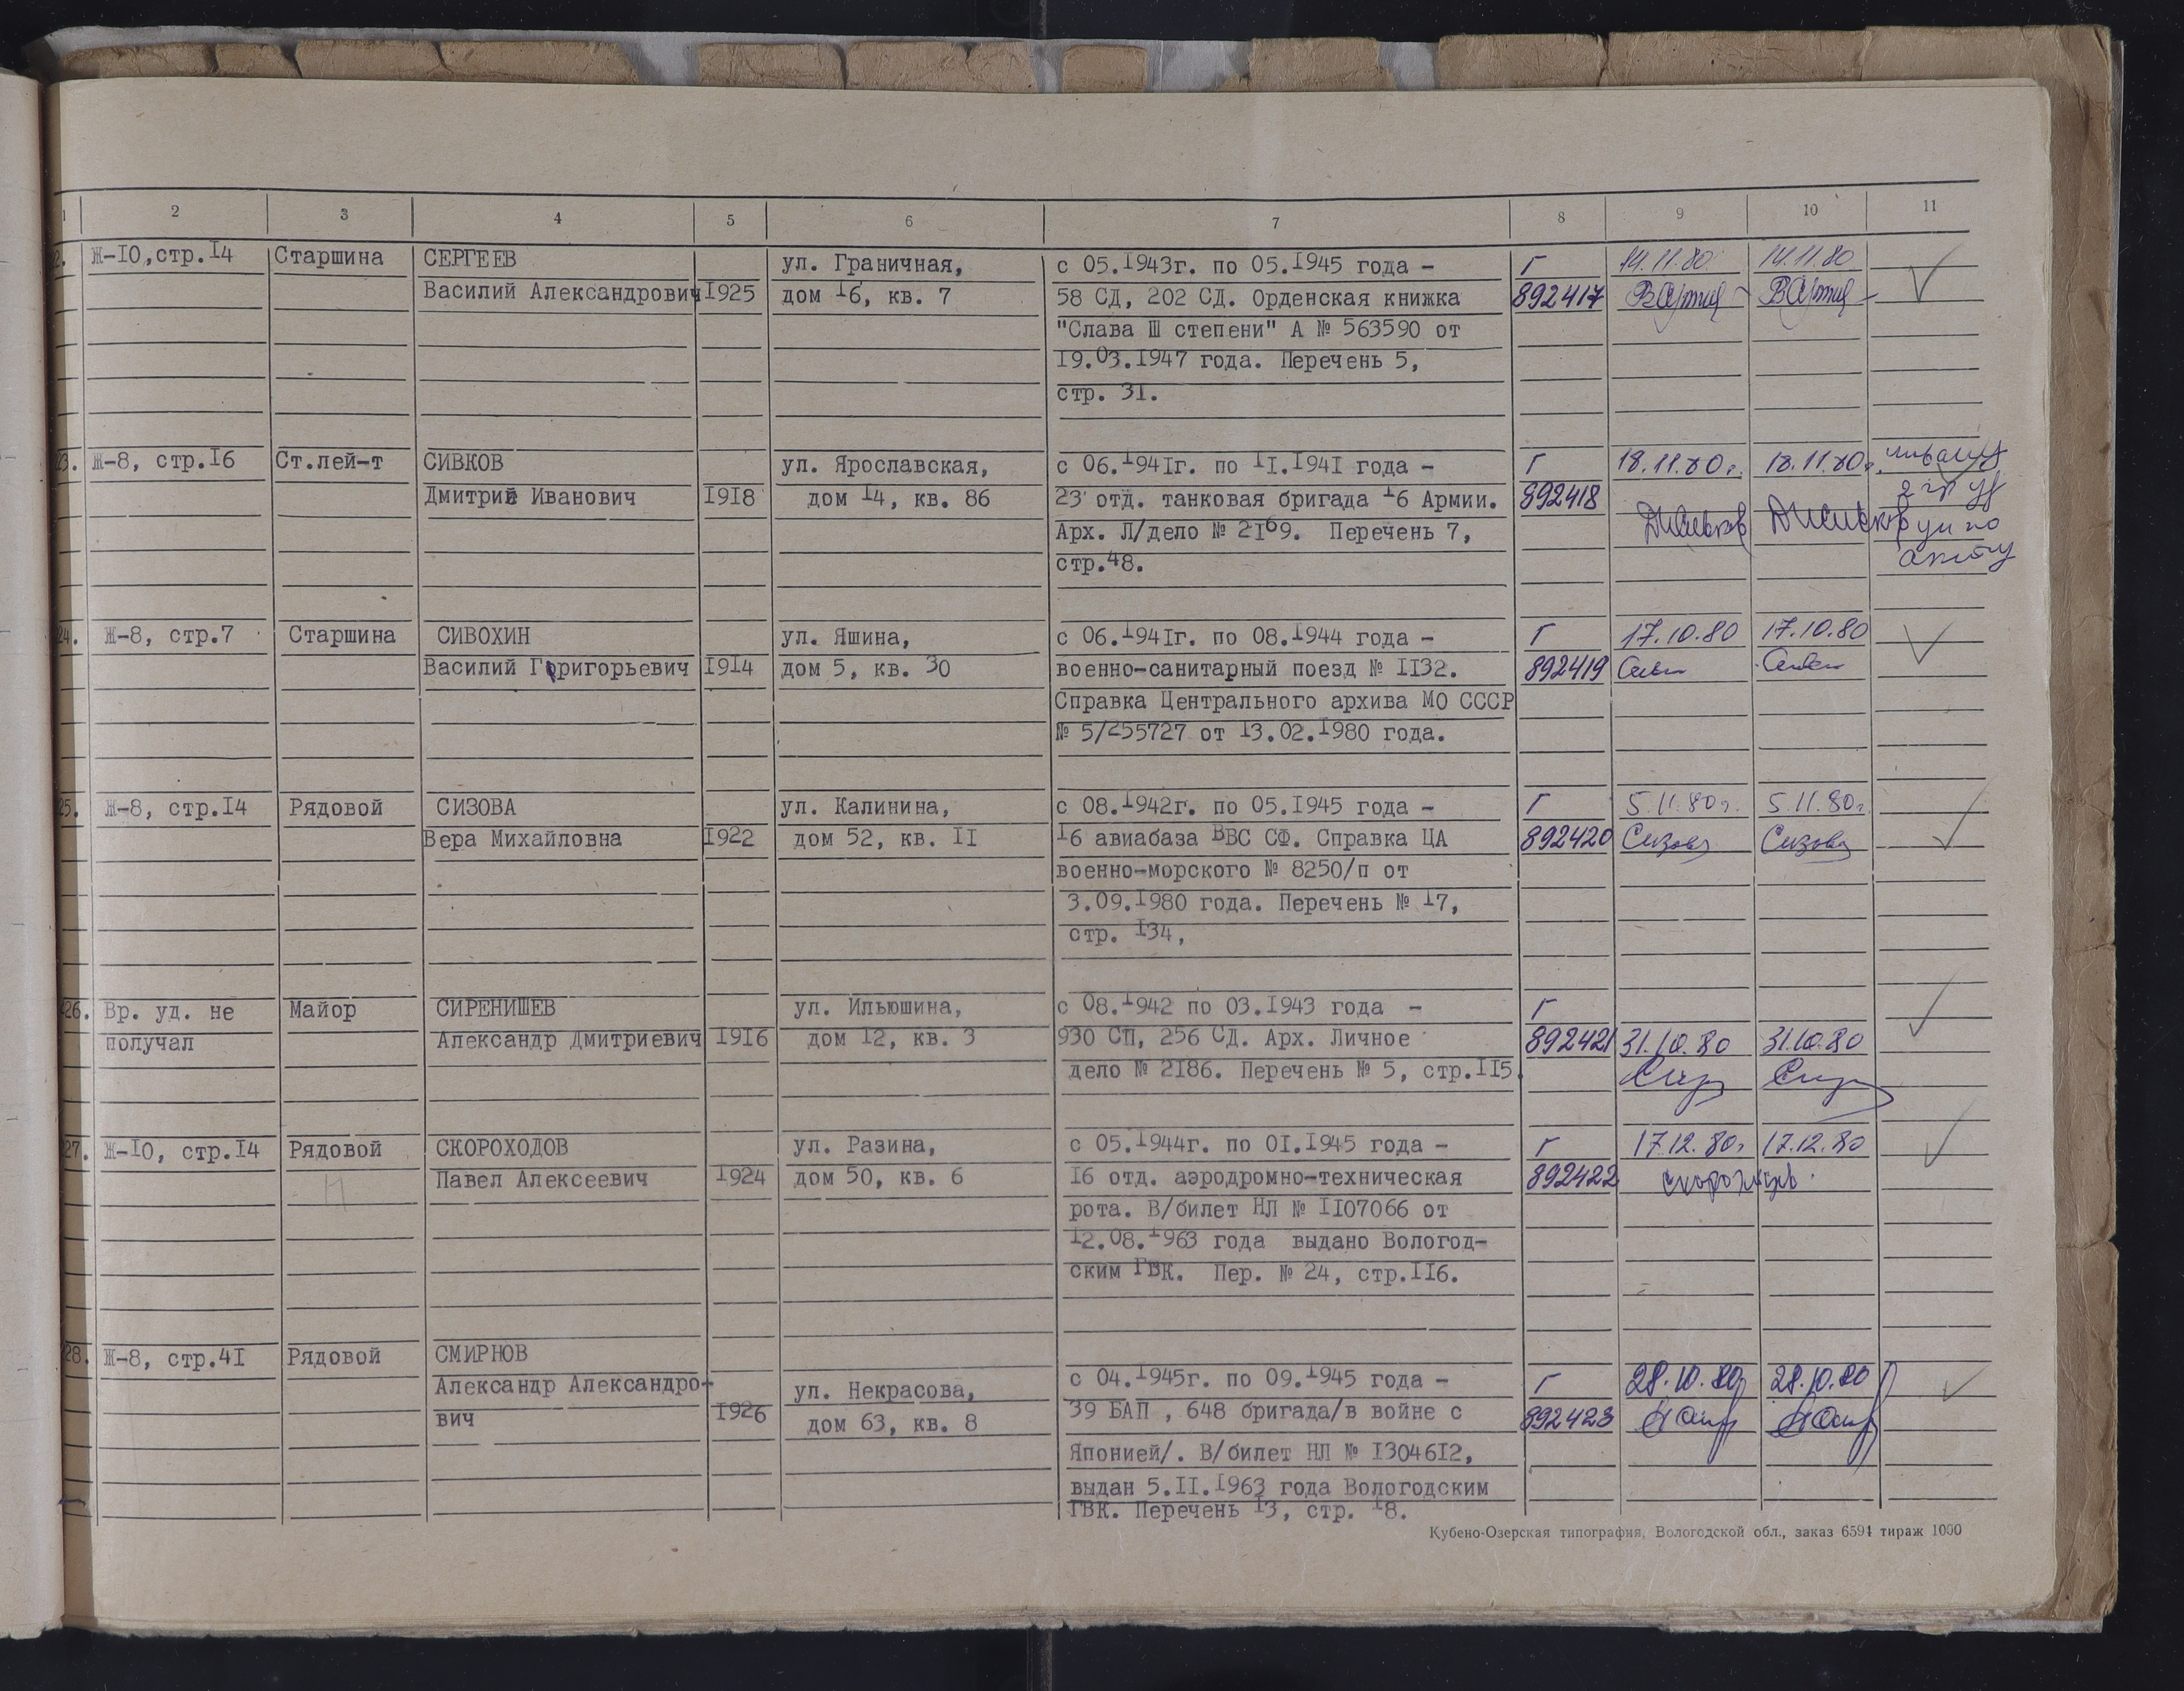 1 2 3 4 5 6 7 8 9 10 11
2. Ж-10,стр.14 Старшина СЕРГЕЕВ ул. Граничная, с 05.1943г. по 05.1945 года - Г 14.11.80 14.11.80
Василий Александрович 1925 дом 16, кв. 7 58 СД, 202 СД. Орденская книжка 892417
"Слава Ш степени" А № 563590 от
19.03.1947 года. Перечень 5,
стр. 31.
23. Ж-8, стр.16 Ст.лей-т СИВКОВ ул. Ярославская, с 06.1941г. по 11.1941 года - Г 18.11.80г. 18.11.80г.
Дмитрий Иванович 1918 дом 14, кв. 86 23 отд. танковая бригада 16 Армии. 892418
Арх. Л/дело № 2169. Перечень 7,
стр.48. акту
24. Ж-8, стр.7 Старшина СИВОХИН ул. Яшина, с 06.1941г. по 08.1944 года - Г 17.10.80 17.10.80
Василий Григорьевич 1914 дом 5, кв. 30 военно-санитарный поезд № 1132. 892419
Справка Центрального архива МО СССР
№ 5/255727 от 13.02.1980 года.
25. Ж-8, стр.14 Рядовой СИЗОВА ул. Калинина, с 08.1942г. по 05.1945 года - Г 5.11.80г. 5.11.80г.
Вера Михайловна 1922 дом 52, кв. 11 16 авиабаза ВВС СФ. Справка ЦА 892420 Сизова Сизова
военно-морского № 8250/п от
3.09.1980 года. Перечень № 17,
стр. 134,
26. Вр. уд. не Майор СИРЕНИШЕВ ул. Ильюшина, с 08.1942 по 03.1943 года - Г
получал Александр Дмитриевич 1916 дом 12, кв. 3 930 СП, 256 СД. Арх. Личное 892421 31.10.80 31.10.80
дело № 2186. Перечень № 5, стр.115.
27. Ж-10, стр.14 Рядовой СКОРОХОДОВ ул. Разина, с 05.1944г. по 01.1945 года - Г 17.12.80г 17.12.80
Павел Алексеевич 1924 дом 50, кв. 6 16 отд. аэродромно-техническая 892422
рота. В/билет НЛ № 1107066 от
12.08.1963 года выдано Вологод-
ским ГВК. Пер. № 24, стр.116.
28. Ж-8, стр.41 Рядовой СМИРНОВ
Александр Александро- ул. Некрасова, с 04.1945г. по 09.1945 года - Г 28.10.80 28.10.80
вич 1926 дом 63, кв. 8 39 БАП , 648 бригада/в войне с 892423
Японией/. В/билет НЛ № 1304612,
выдан 5.11.1963 года Вологодским
ГВК. Перечень 13, стр. 18.
Кубено-Озерская типография, Вологодской обл., заказ 6594 тираж 1000